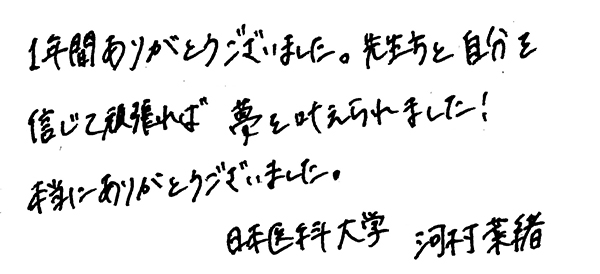 1年間ありがとうございました。先生方と自分を
信じて頑張れば 夢を叶えられました!
本当にありがとうございました。
日本医科大学 河村菜緒